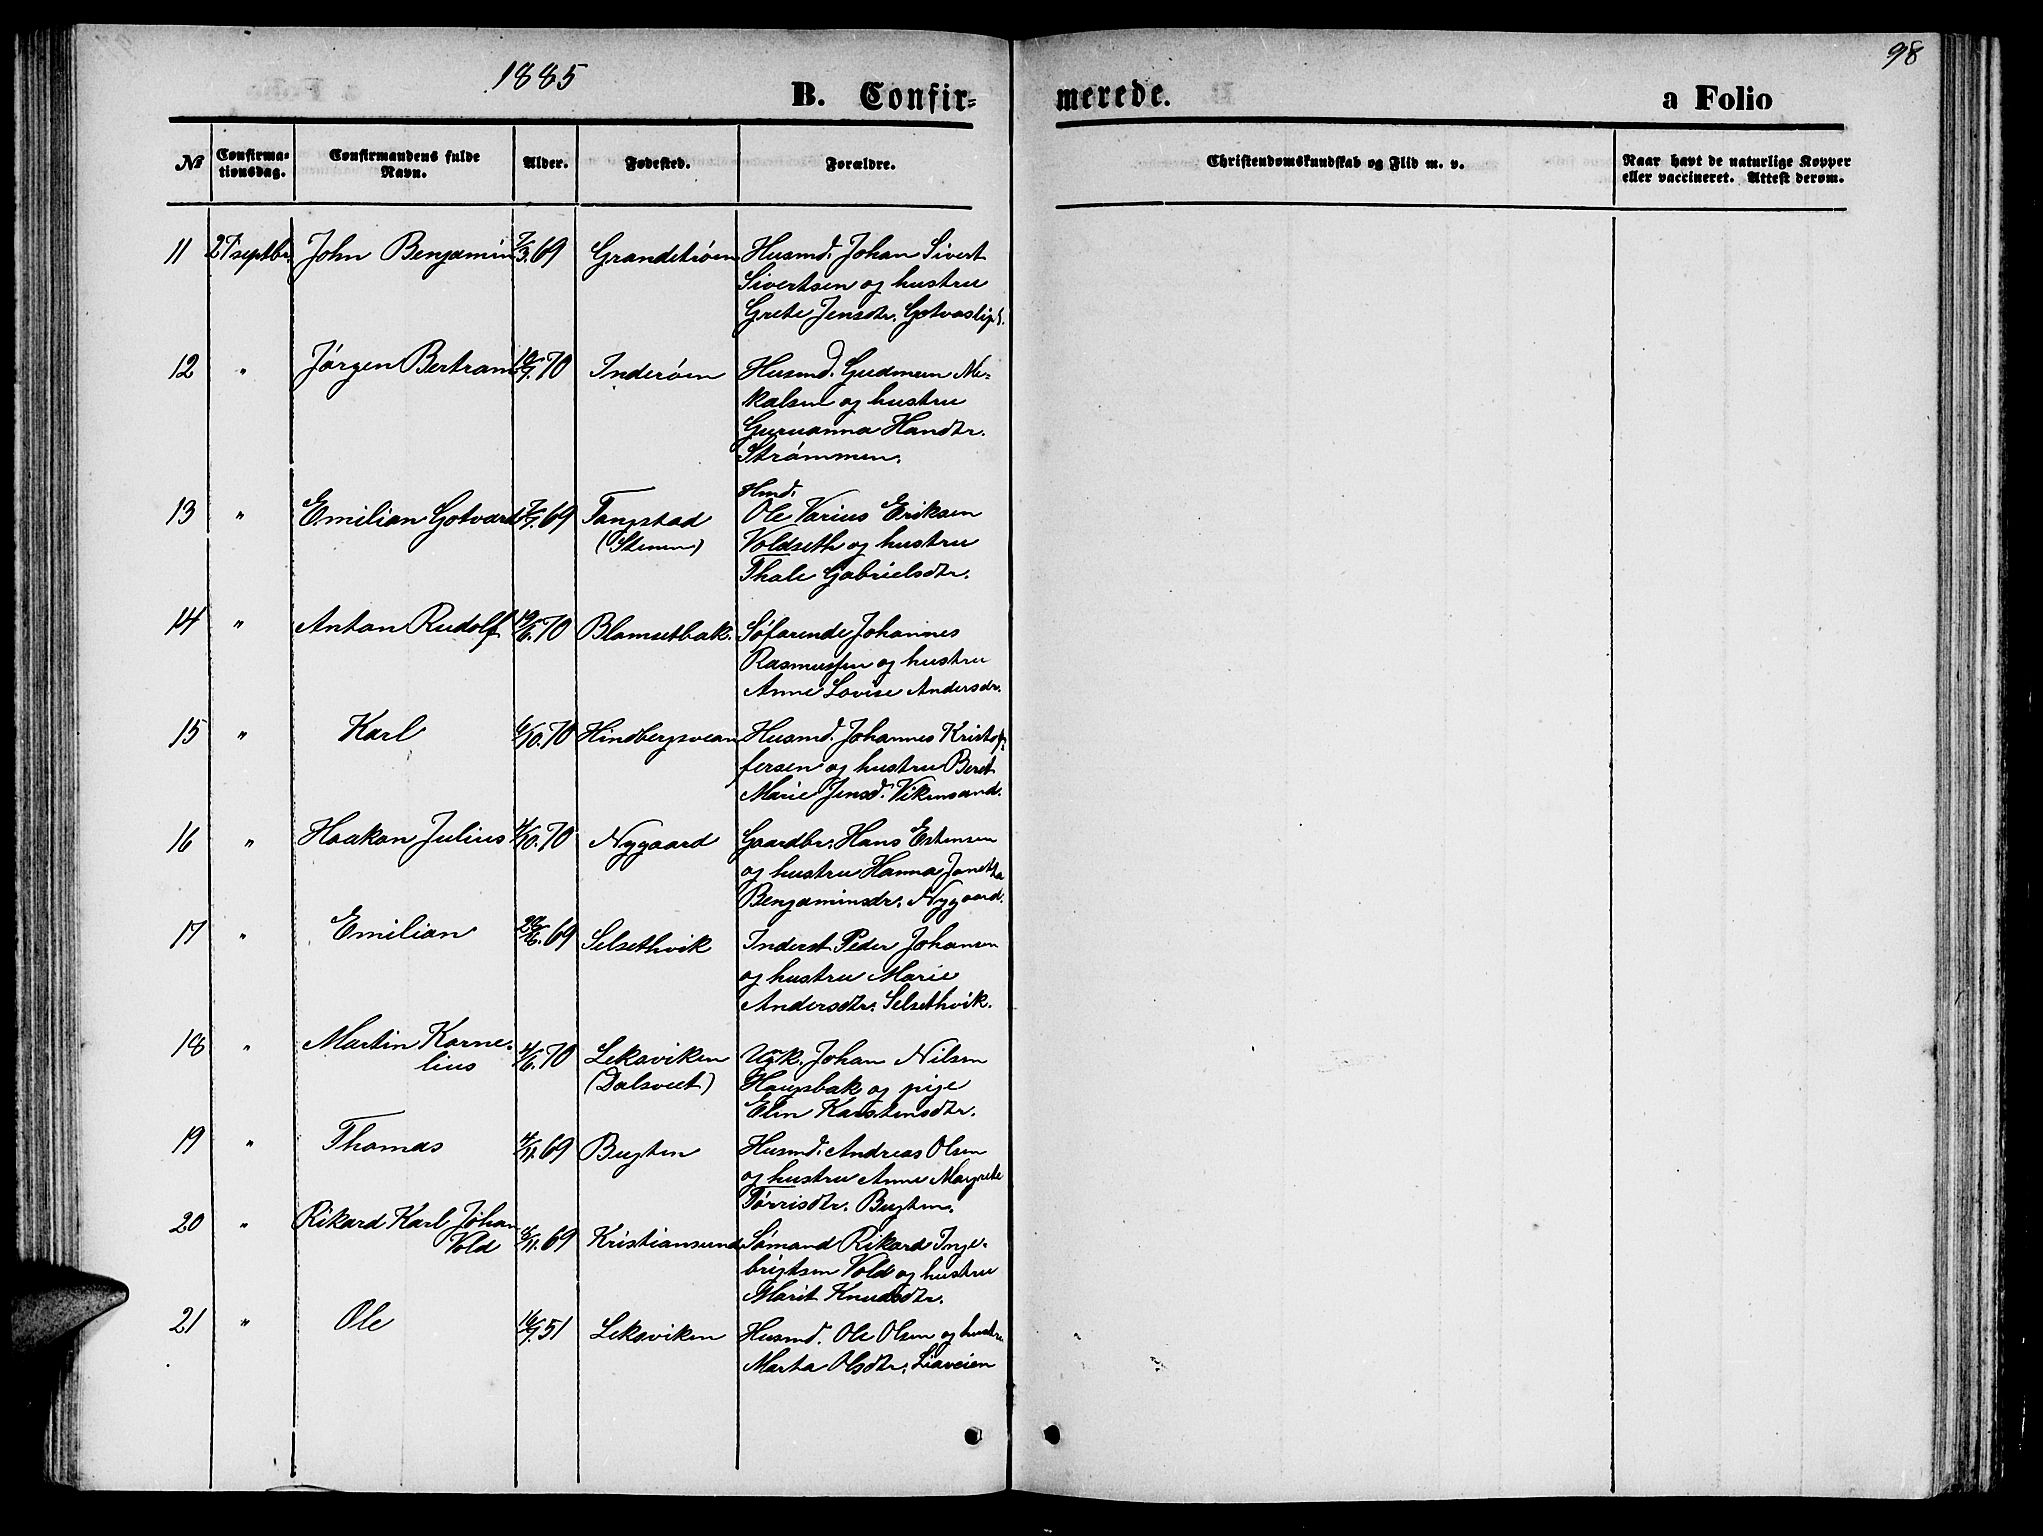 98
1885
B. Confir=
merede.
a Folio
No
Confirma=
tionsdag.
Confirmandens fulde
Navn.
Alder.
Fødested.
Forældre.
Christendomskundskab og Flid m. v.
Naar havt de naturlige Kopper
eller vaccineret. Attest derom.
11 27 septbr. John Benjamin 7/3.69 Grandetrøen Husmd. Johan Sivert
Sivertsen og hustru
Grete Jensdtr.
12 " Jørgen Bertram 70 Inderøen Husmd. Gudmun Mi-
kalsen og hustru
Guruanna Hansdtr.
Strømmen.
13 " Emilian Gotvard 69 Tangstad Hmd.
Ole Varius Eriksen
(Stenen) Voldseth og hustru
Thale Gabrielsdtr.
14 " Anton Rudolf 19/6.70 Blamsetbak. Søfarende Johannes
Rasmussen og hustru
Anne Lovise Andersdr.
15 " Karl 6/10.70 Hindbergsvean Husmd. Johannes Kristof-
fersen og hustru Beret
Marie Jensd. Vikensand.
16 " Haakon Julius 4/10.70 Nygaard Gaardbr. Hans Estensen
og hustru Hanna Jonetta
Benjaminsdr. Nygaard.
17 " Emilian 69 Selsethvik Inderst Peder Johansen
og hustru Marie
Andersdtr. Selsethvik.
18 " Martin Korne-
lius 4/6.70 Leksviken Ugk. Johan Nilsen
(Dalsveet) Haugsbak og pige
Elen Karstensdtr.
19 " Thomas 4/11.69 Bugten Husmd. Andreas Olsen
og hustru Anne Margrete
Tørrisdtr. Bugten.
20 " Rikard Karl Johan
Vold 6/11.69 Kristiansund Sømand Rikard Inge-
brigtsen Vold og hustru
Marit Knudsdtr.
21 " Ole 16/7.51 Leksviken Husmd. Ole Olsen og hustru
Marta Olsdtr. Liaveien